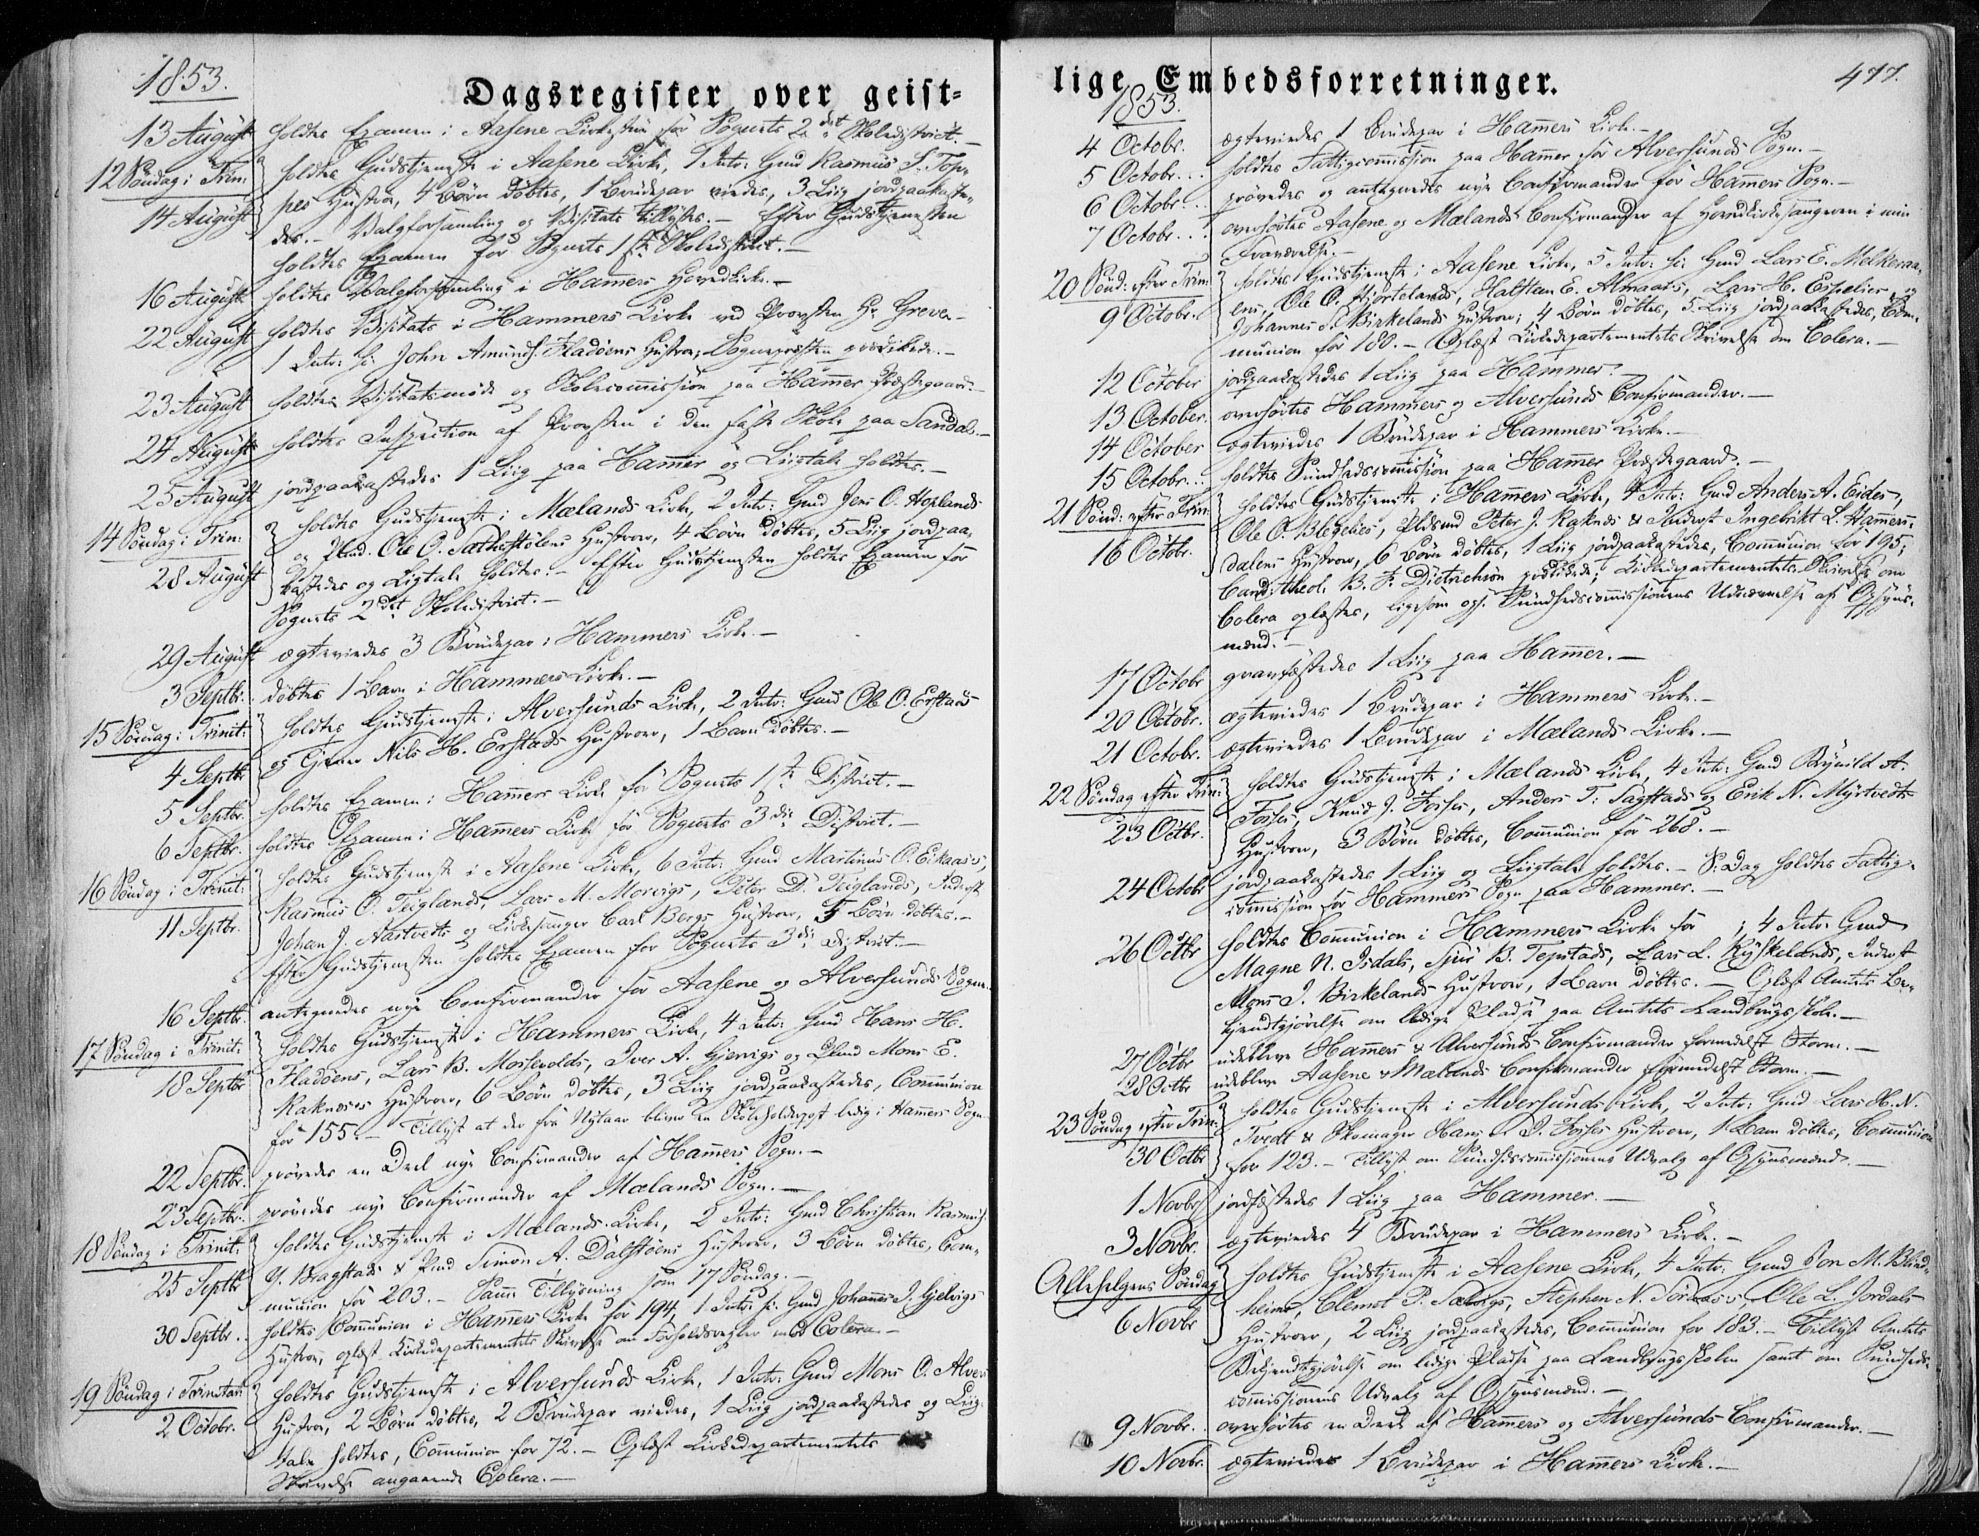 1853.
Dagsregister over geist-
13 August holdtes Examen i Aasene Kirkestue for Sognets 2det Skoledistrict.
12 Söndag i Trin: holdtes Gudstjeneste i Aasene Kirke, 1 Intr: Gmd Rasmus S. Top-
14 August pes Hustrue, 4 Börn döbtes, 1 Brudepar viedes, 3 Liig jordpaakaste-
des. – Valgforsamling og Visitats tillystes. – Efter Gudstjenesten
holdtes Examen for Sognets 1ste Skoledistrict. –
16 August holdtes Valgforsamling i Hammers Hovedkirke. –
22 August holdtes Visitats i Hammers Kirke ved Provsten Hr Greve. –
1 Intr: fr: John Amunds. Fladöens Hustrue; Sognepræsten prædikede. –
23 August holdtes Visitatsmöde og Skolecommission paa Hammer Præstegaard. –
24 August holdtes Inspection af Provsten i den faste Skole paa Sandal. –
25 August jordpaakastedes 1 Liig paa Hammer og Liigtale holdtes. –
14 Söndag i Trin: holdtes Gudstjeneste i Mælands Kirke, 2 Intr: Gmd Jens O. Hoplands
28 August og Plmd. Ole O. Sætherstölens Hustruer, 4 Börn döbtes, 5 Liig jordpaa-
kastedes og Ligtale holdtes. – Efter Gudstjenesten holdtes Examen for
Sognets 2det Skoledistrict. –
29 August ægteviedes 3 Brudepar i Hammers Kirke. –
3 Septbr. döbtes 1 Barn i Hammers Kirke. –
15 Söndag i Trinit: holdtes Gudstjeneste i Alversunds Kirke, 2 Intr: Gmd Ole O. Erstads
4 Septbr. og Nils H. Erstads Hustruer, 1 Barn döbtes. –
5 Septbr. holdtes Examen i Hammers Kirke for Sognets 1ste District. –
6 Septbr. holdtes Examen i Hammers Kirke for Sognets 3die District. –
16 Söndag i Trinit: holdtes Gudstjeneste i Aasene Kirke, 6 Intr: Gmd Martinus O. Eikaas's,
11 Septbr. Rasmus O. Teiglands, Lars M. Morvigs, Peter D. Teiglands, Inderst
Johan J. Aastvedts og Kirkesanger Carl Bergs Hustruer, 5 Börn döbtes. –
Efter Gudstjenesten holdtes Examen for Sognets 3die District. –
16 Septbr. antegnedes nye Confirmander for Aasene og Alversunds Sogne.
17 Söndag i Trinit: holdtes Gudstjeneste i Hammers Kirke, 4 Intr: Gmd Hans H.
18 Septbr. Fladöens, Lars B. Mosevolds, Iver A. Gjervigs og Plmd Mons E.
Raknæses Hustruer, 6 Börn döbtes, 3 Liig jordpaakastedes, Communion
for 155. – Tillyst at der fra Nytaar bliver en Skoleholderpost ledig i Hammers Sogn.
22 Septbr. prövedes en Deel nye Confirmander af Hammers Sogn. –
23 Septbr. prövedes nye Confirmander af Mælands Sogn. –
18 Söndag i Trinit: holdtes Gudstjeneste i Mælands Kirke, 2 Intr: Gmd Christian Rasmus.
25 Septbr. Y. Bragstads & Plmd Simon A. Dalstöens Hustruer, 3 Börn döbtes, Com-
munion for 203. – Samme Tillysning som 17 Söndag. –
30 Septbr. holdtes Communion i Hammers Kirke for 194, 1 Intr: fr: Gmd Johannes J. Gjelvigs
Hustrue, oplæst Kirkedepartementets Skrivelse om Forholdsregler mod Colera. –
19 Söndag i Trinitas: holdtes Gudstjeneste i Alversunds Kirke, 1 Intr: Gmd Mons O. Alvers
2 Octobr. Hustrue, 2 Börn döbtes, 2 Brudepar viedes, 1 Liig jordpaakastedes og Liig-
tale holdtes, Communion for 72. – Oplæst Kirkedepartementets
Skrivelse angaaende Colera. –
lige Embedsforretninger.
477.
1853.
4 Octobr. ægteviedes 1 Brudepar i Hammers Kirke. –
5 Octobr. holdtes Fattigcommission paa Hammer for Alversunds Sogn. –
6 Octobr. prövedes og antegnedes nye Confirmander for Hammers Sogn. –
7 Octobr. overhörtes Aasene og Mælands Confirmander af Hovedkirkesangeren i min
Fraværelse. –
20 Sönd: efter Trin: holdtes Gudstjeneste i Aasene Kirke, 5 Intr: fr: Gmd Lars E. Melkeraa-
9 Octobr. ens, Ole O. Hjortelands, Halsteen E. Almaas's, Lars H. Espelies og
Johannes S. Birkelands Hustruer; 4 Börn döbtes, 5 Liig jordpaakastedes, Com-
munion for 180. – Oplæst Kirkedepartementets Skrivelse om Colera. –
12 October jordpaakastedes 1 Liig paa Hammer. –
13 October. overhörtes Hammers og Alversunds Confirmander. –
14 October ægteviedes 1 Brudepar i Hammers Kirke. –
15 Octobr. holdtes Sundhedscommission paa Hammer Præstegaard. –
21 Sönd: efter Trin: holdtes Gudstjeneste i Hammers Kirke, 4 Intr: Gmd Anders A. Eides,
16 Octbr. Ole O. Blegelies, Pldsmd Peter J. Raknes & Inderst Ingebrikt L. Hammers-
dalens Hustruer, 6 Börn döbtes, 1 Liig jordpaakastedes, Communion for 195;
Cand. theol. B. F. Dietrichson prædikede; Kirkedepartementets Skrivelse om
Colera oplæstes, ligesom ogs. Sundhedscommissionens Udnævnelse af Opsyns-
mænd. –
17 Octobr gravfæstedes 1 Liig paa Hammer. –
20 Octobr. ægteviedes 1 Brudepar i Hammers Kirke. –
21 Octobr. ægteviedes 1 Brudepar i Mælands Kirke. –
22 Söndag efter Trin: holdtes Gudstjeneste i Mælands Kirke, 4 Intr: Gmd Brynild A.
23 Octbr. Fosses, Knud J. Fosses, Anders T. Sagstads og Erik N. Myrtvedts
Hustruer, 3 Börn döbtes, Communion for 268. –
24 Octobr jordpaakastedes 1 Liig og Liigtale holdtes. – S. Dag holdtes Fattig-
commission for Hammers Sogn paa Hammer. –
26 Octbr holdtes Communion i Hammers Kirke for ; 4 Intr: Gmd
Magne N. Isdals, Sjur B. Tepstads, Lars L. Ryskelands, Inderst
Mons J. Birkelands Hustruer, 1 Barn döbtes. – Oplæst Amtets Be-
kjendtgjörelse om ledige Pladse paa Amtets Landbrugsskole. –
27 Octbr udebleve Hammers & Alversunds Confirmander formedelst Storm. –
28 Octbr udebleve Aasene & Mælands Confirmander formedelst Storm. –
23 Söndag efter Trin: holdtes Gudstjeneste i Alversunds Kirke, 2 Intr: Gmd Lars H. N.
30 Octbr Tvedt & Skomager Hans J. Fosses Hustruer, 1 Barn döbtes, Communion
for 123. – Tillyst om Sundhedscommissionens Udvalg af Opsynsmænd. –
1 Novbr jordfæstedes 1 Liig paa Hammer. –
3 Novbr. ægteviedes 4 Brudepar i Hammers Kirke. –
Allehelgens Söndag holdtes Gudstjeneste i Aasene Kirke, 4 Intr: Gmd Jon M. Blind-
6 Novbr heims, Clemet P. Sævigs, Stephen N. Töraas's, Ole L. Jordals
Hustruer, 2 Liig jordpaakastedes, Communion for 183. – Tillyst Amtets
Bekjendtgjörelse om ledige Pladse paa Landbrugsskolen samt om Sundheds-
commissionens Udvalg af Opsynsmænd. –
9 Novbr. overhörtes en Deel af Hammers og Alversunds Confirmander. –
10 Novbr. ægteviedes 1 Brudepar i Hammers Kirke. –